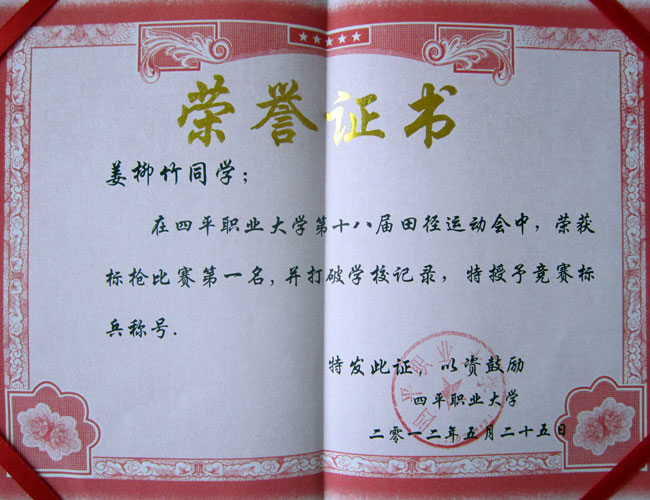 荣誉证书
姜柳竹同学；
在四平职业大学第十八届田径运动会中，荣获
标枪比赛第一名，并打破学校记录，特授予竞赛标
兵称号.
特发此证，以资鼓励
四平职业大学
二零一二年五月二十五日
四平职业大学